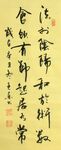 法於陰陽和於術數
食飲有節起居有常